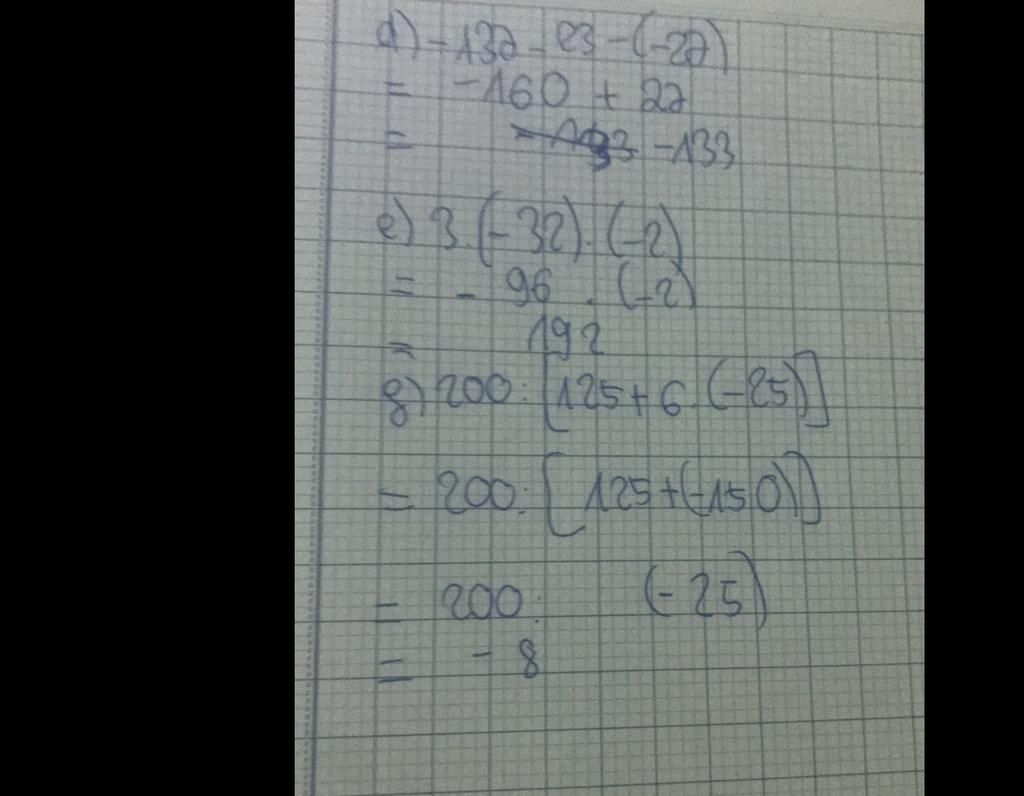 d) -137 - 23 - (-27)
= -160 + 27
= -133
e) 3.(-32).(-2)
= - 96 . (-2)
= 192
g) 200:[125+6.(-25)]
= 200:[125+(-150)]
= 200: (-25)
= -8